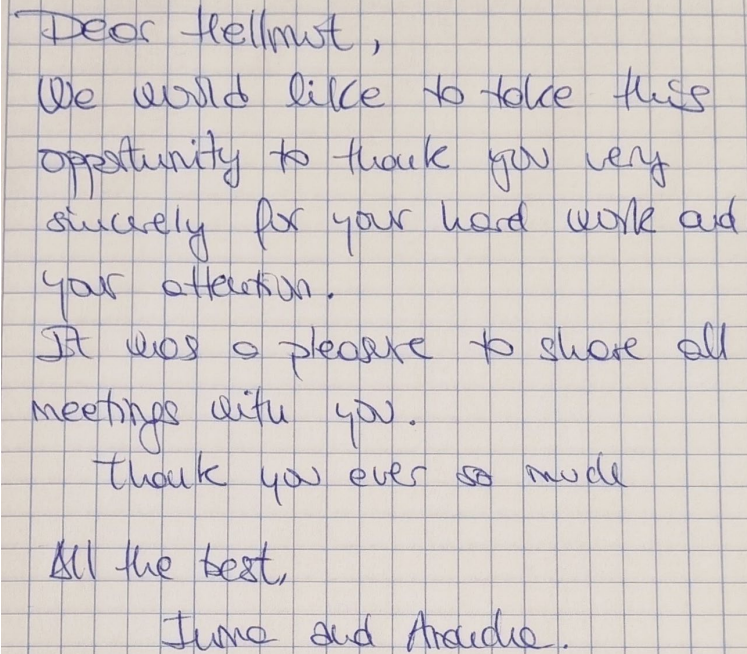 Dear Hellmut,
We would like to take this
opportunity to thank you very
sincerely for your hard work and
your attention.
It was a pleasure to share all
meetings with you.
Thank you ever so much
All the best,
and